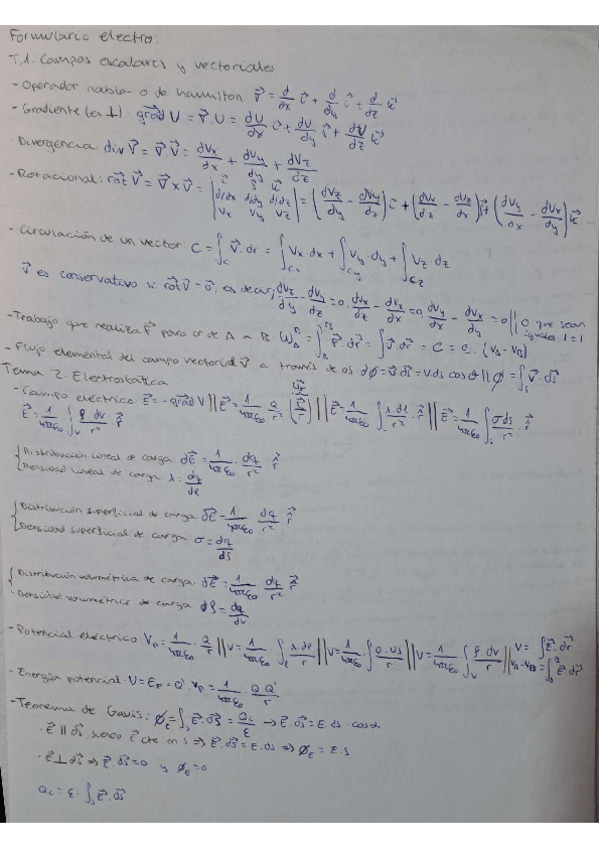 Formulario electro:
T.1. Campos escalares y vectoriales
- Operador nabla o de hamilton: ∇⃗ = d/dx i⃗ + d/dy j⃗ + d/dz k⃗
- Gradiente (es ⊥): grad⃗ U = ∇⃗ U = dU/dx i⃗ + dU/dy j⃗ + dU/dz k⃗
Divergencia: div V⃗ = ∇⃗ V⃗ = dVx/dx + dVy/dy + dVz/dz
- Rotacional: rot⃗ V⃗ = ∇⃗ × V⃗ = |i⃗ j⃗ k⃗; d/dx d/dy d/dz; Vx Vy Vz| = (dVz/dy - dVy/dz) i⃗ + (dVx/dz - dVz/dx) j⃗ + (dVy/dx - dVx/dy) k⃗
- Circulación de un vector: C = ∫c V⃗·dr = ∫cx Vx dx + ∫cy Vy·dy + ∫cz Vz dz
V⃗ es conservativo si rot⃗ V⃗ = 0⃗, es decir, dVz/dy - dVy/dz = 0, dVx/dz - dVz/dx = 0, dVy/dx - dVx/dy = 0 || O que sean iguales 1=1
- Trabajo que realiza F⃗ para ir de A a B
- Flujo elemental del campo vectorial V⃗ a través de ds dϕ = V⃗ dS⃗ = V ds cos θ || ϕ = ∫s V⃗·dS⃗
Tema 2. Electrostática
- Campo eléctrico: E⃗ = -grad⃗ V || E⃗ = 1/4πε₀ · Q/r² (r⃗/r) || E⃗ = 1/4πε₀ ∫ λ dl/r² · r̂ || E⃗ = 1/4πε₀ ∫s σ ds/r² · r̂
E⃗ = 1/4πε₀ ∫v ρ dv/r² r̂
{ Distribución lineal de carga: dE⃗ = 1/4πε₀ · dq/r² r̂
Densidad lineal de carga: λ = dq/dl
{ Distribución superficial de carga: dE⃗ = 1/4πε₀ · dq/r² r̂
Densidad superficial de carga: σ = dq/dS
{ Distribución volumétrica de carga: dE⃗ = 1/4πε₀ · dq/r² r̂
Densidad volumétrica de carga: ρ = dq/dv
- Potencial eléctrico Vp = 1/4πε₀ · Q/r || V = 1/4πε₀ · ∫ λ·dl/r || V = 1/4πε₀ · ∫ σ·ds/r || V = 1/4πε₀ ∫v ρ·dv/r || V = ∫E⃗·dr⃗ VA-VB = ∫ E⃗·dr⃗
- Energía potencial: U = Ep = Q'·Vp = 1/4πε₀ · Q·Q'/r
- Teorema de Gauss: ϕE = ∫s E⃗·dS⃗ = Qi/ε → E⃗·dS⃗ = E ds·cos α
· E⃗ || dS⃗, siendo E⃗ cte en S ⇒ E⃗·dS⃗ = E·ds ⇒ ϕE = E·S
· E⃗ ⊥ dS⃗ ⇒ E⃗·dS⃗ = 0 y ϕE = 0
Qi = ε·∫s E⃗·dS⃗